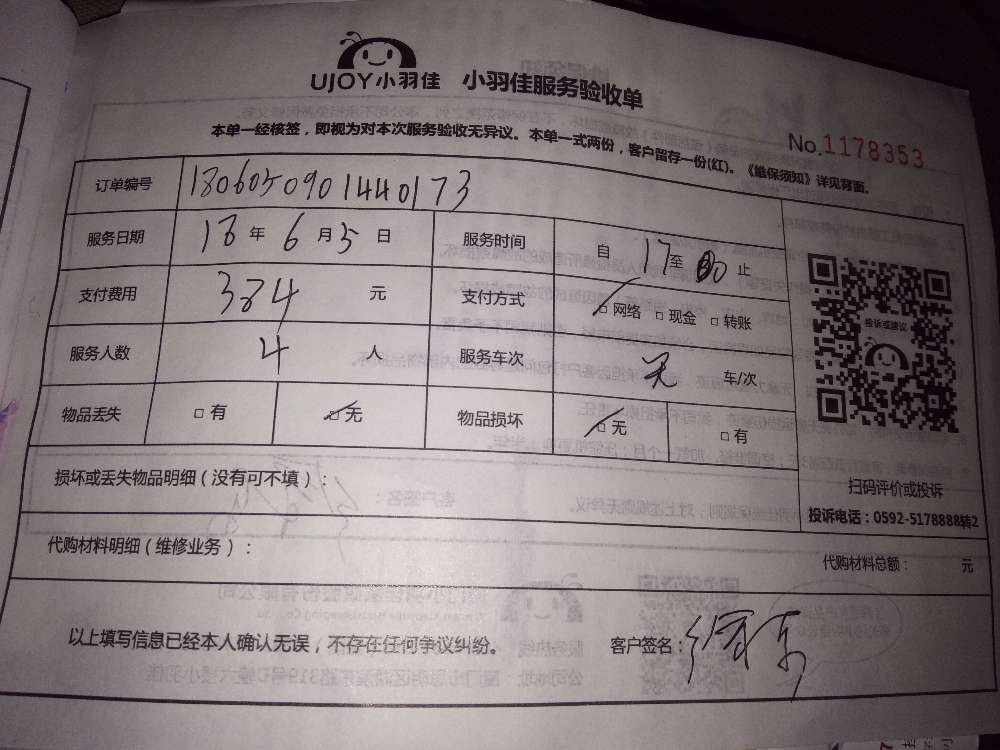 UJOY小羽佳 小羽佳服务验收单
本单一经核签，即视为对本次服务验收无异议。本单一式两份，客户留存一份(红)。《维保须知》详见背面。
No.1178353
订单编号 1806050901440173
服务日期 18年6月5日 服务时间 自17至 止
支付费用 384元 支付方式 □网络 □现金 □转账
服务人数 4人 服务车次 无 车/次
物品丢失 □有 □无 物品损坏 □无 □有
投诉或建议
扫码评价或投诉
投诉电话：0592-5178888转2
损坏或丢失物品明细（没有可不填）：
代购材料明细（维修业务）： 代购材料总额： 元
以上填写信息已经本人确认无误，不存在任何争议纠纷。 客户签名：